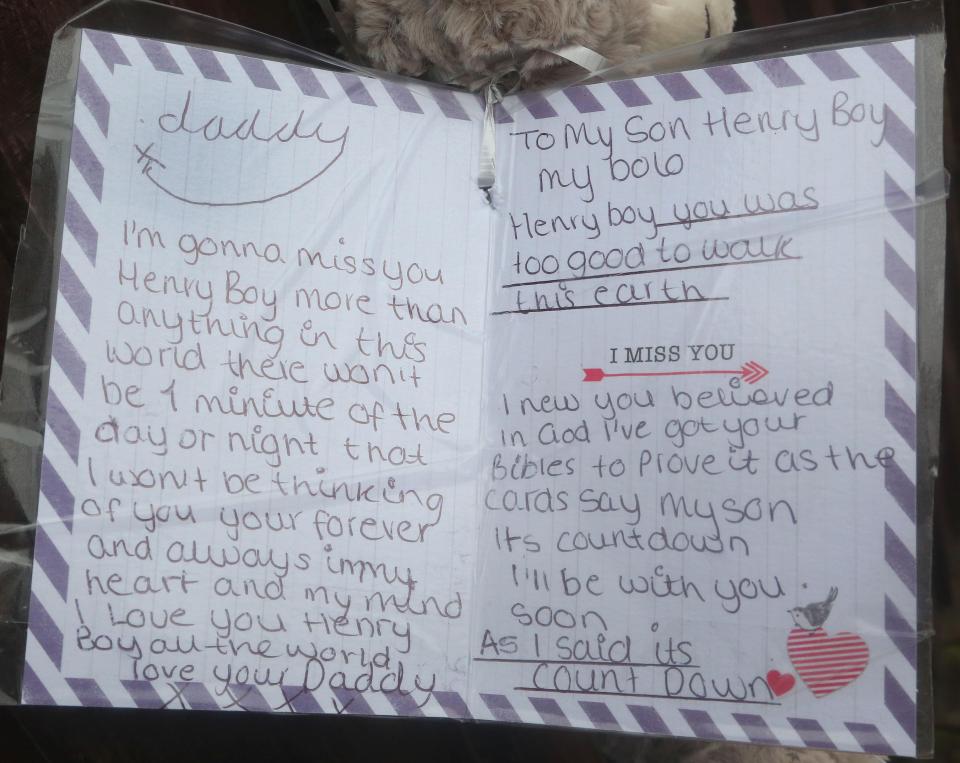 daddy
I'm gonna miss you
Henry Boy more than
anything in this
world there won't
be 1 miniute of the
day or night that
I won't be thinking
of you your forever
and always in my
heart and my mind
I Love you Henry
Boy all the world
love your Daddy
x x x x
To My Son Henry Boy
my bolo
Henry boy you was
too good to walk
this earth
I MISS YOU
I new you believed
in God I've got your
Bibles to Prove it as the
cards say my son
Its countdown
I'll be with you
soon
As I said its
Count Down